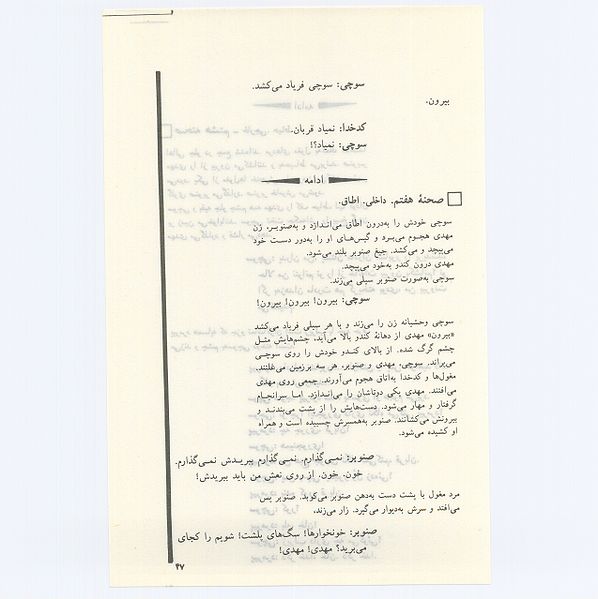 سوچی: سوچی فریاد می‌کشد.
بیرون.
کدخدا: نمیاد قربان.
سوچی: نمیاد؟!
ادامه
صحنهٔ هفتم. داخلی. اطاق.
سوچی خودش را به‌درون اطاق می‌اندازد و به‌صنوبر، زن
مهدی هجوم می‌برد و گیس‌های او را به‌دور دست خود
می‌پیچد و می‌کشد. جیغ صنوبر بلند می‌شود.
مهدی درون کندو به‌خود می‌پیچد.
سوچی به‌صورت صنوبر سیلی می‌زند.
سوچی: بیرون! بیرون! بیرون!
سوچی وحشیانه زن را می‌زند و با هر سیلی فریاد می‌کشد
«بیرون» مهدی از دهانهٔ کندو بالا می‌آید، چشم‌هایش مثل
چشم گرگ شده. از بالای کندو خودش را روی سوچی
می‌پراند. سوچی، مهدی و صنوبر، هر سه برزمین می‌غلتند.
مغول‌ها و کدخدا به‌اتاق هجوم می‌آورند. جمعی روی مهدی
می‌افتند. مهدی یکی دوتاشان را می‌اندازد. اما سرانجام
گرفتار و مهار می‌شود. دست‌هایش را از پشت می‌بندند و
بیرونش می‌کشانند. صنوبر به‌همسرش چسبیده است و همراه
او کشیده می‌شود.
صنوبر: نمی‌گذارم. نمی‌گذارم ببریدش نمی‌گذارم.
خون. خون. از روی نعش من باید ببریدش!
مرد مغول با پشت دست به‌دهن صنوبر می‌کوبد. صنوبر پس
می‌افتد و سرش به‌دیوار می‌گیرد. زار می‌زند.
صنوبر: خونخوارها! سگ‌های پلشت! شویم را کجای
می‌برید؟ مهدی! مهدی!
۴۷